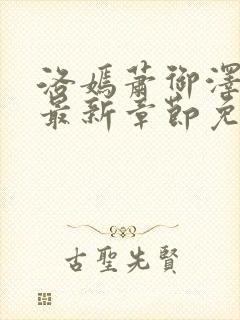 洛嫣蕭御澤
最新章節免
古聖先賢